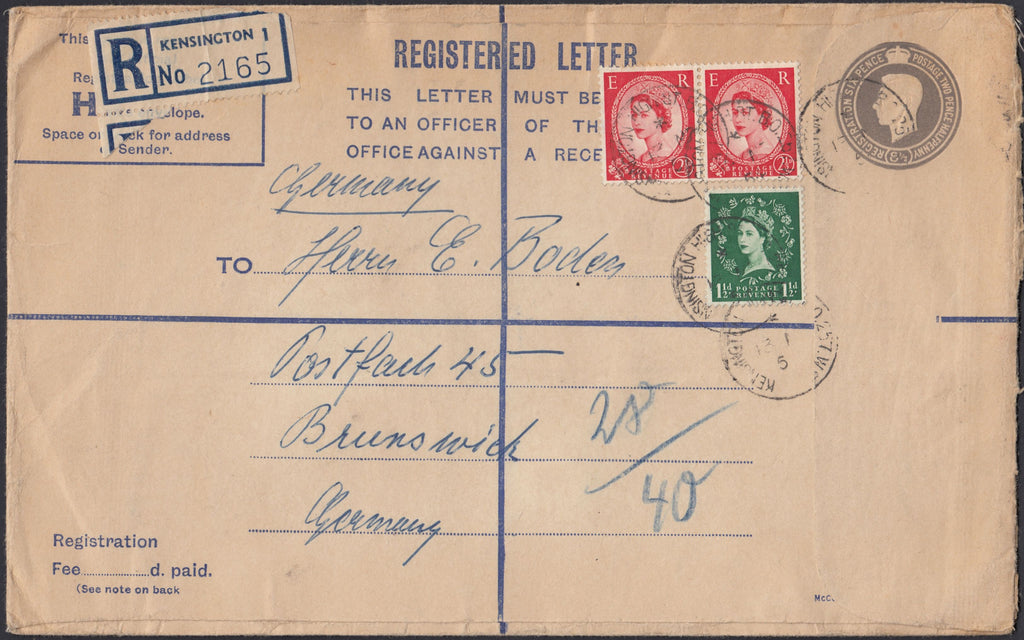 This
R KENSINGTON 1
No 2165
REGISTERED LETTER
THIS LETTER MUST BE
TO AN OFFICER OF TH
OFFICE AGAINST A RECE
Re
H
elope.
Space o ck for address
Sender.
REGISTRATION SIX PENCE POSTAGE TWO PENCE HALFPENNY
8½D
E R
POSTAGE REVENUE
2½D
E R
POSTAGE REVENUE
2½D
1½d POSTAGE REVENUE 1½d
KENSINGTON
13 1
5
Germany
TO Herrn E. Boden
Postfach 45
Brunswick
Germany
28/40
Registration
Fee d. paid.
(See note on back
McC.